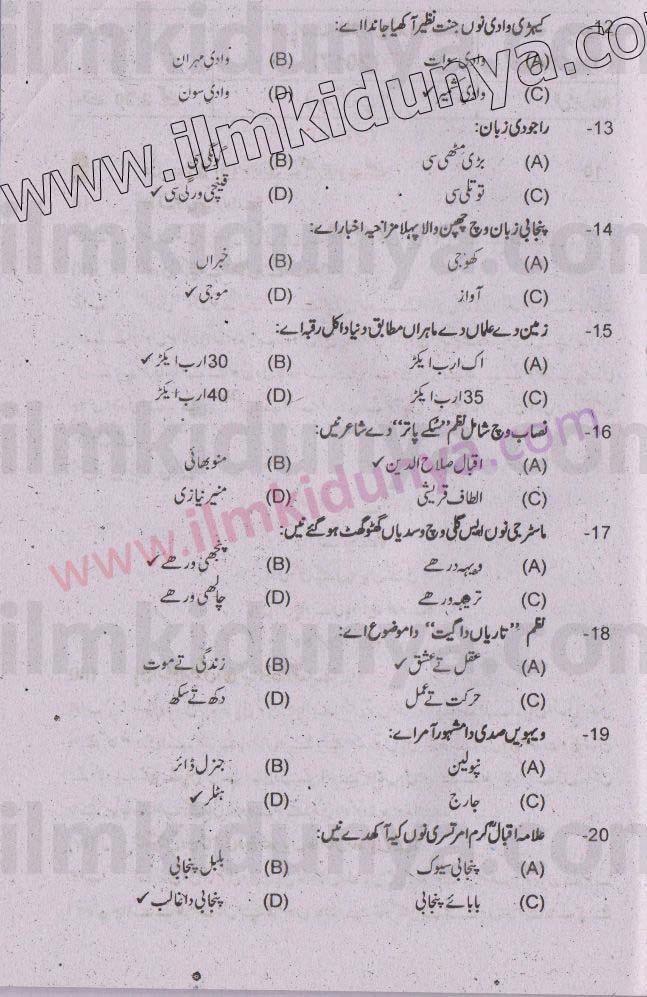 12- کیہڑی وادی نوں جنت نظیر آکھیا جاندا اے:
(A) وادی سوات (B) وادی مہران
(C) وادی کشمیر ✓ (D) وادی سون
13- راجو دی زبان:
(A) بڑی مٹھی سی (B)
(C) توتلی سی (D) قینچی ورگی سی ✓
14- پنجابی زبان وچ چھپن والا پہلا مزاحیہ اخبار اے:
(A) کھوجی (B) خبراں
(C) آواز (D) موجی ✓
15- زمین دے علماں دے ماہراں مطابق دنیا دا کل رقبہ اے:
(A) اک ارب ایکڑ (B) 30 ارب ایکڑ ✓
(C) 35 ارب ایکڑ (D) 40 ارب ایکڑ
16- نصاب وچ شامل نظم "سکے پاتر" دے شاعر نیں:
(A) اقبال صلاح الدین ✓ (B) منو بھائی
(C) الطاف قریشی (D) منیر نیازی
17- ماسٹر جی نوں ایس گلی وچ وسدیاں گھٹو گھٹ ہو گئے نیں:
(A) ویہہ ورھے (B) پنجھی ورھے ✓
(C) تریہہ ورھے (D) چالھی ورھے
18- نظم "تاریاں دا گیت" دا موضوع اے:
(A) عقل تے عشق ✓ (B) زندگی تے موت
(C) حرکت تے عمل (D) دکھ تے سکھ
19- ویہویں صدی دا مشہور آمر اے:
(A) نپولین (B) جنرل ڈائر
(C) جارج (D) ہٹلر ✓
20- علامہ اقبالؒ کرم امرتسری نوں کیہ آکھدے نیں:
(A) پنجابی سیوک (B) بلبل پنجابی
(C) بابائے پنجابی (D) پنجابی دا غالب ✓
www.ilmkidunya.com
www.ilmkidunya.com
ilmkidunya.com
ilmkidunya.com
ilmkidunya.com
ilmkidunya.com
ilmkidunya.com